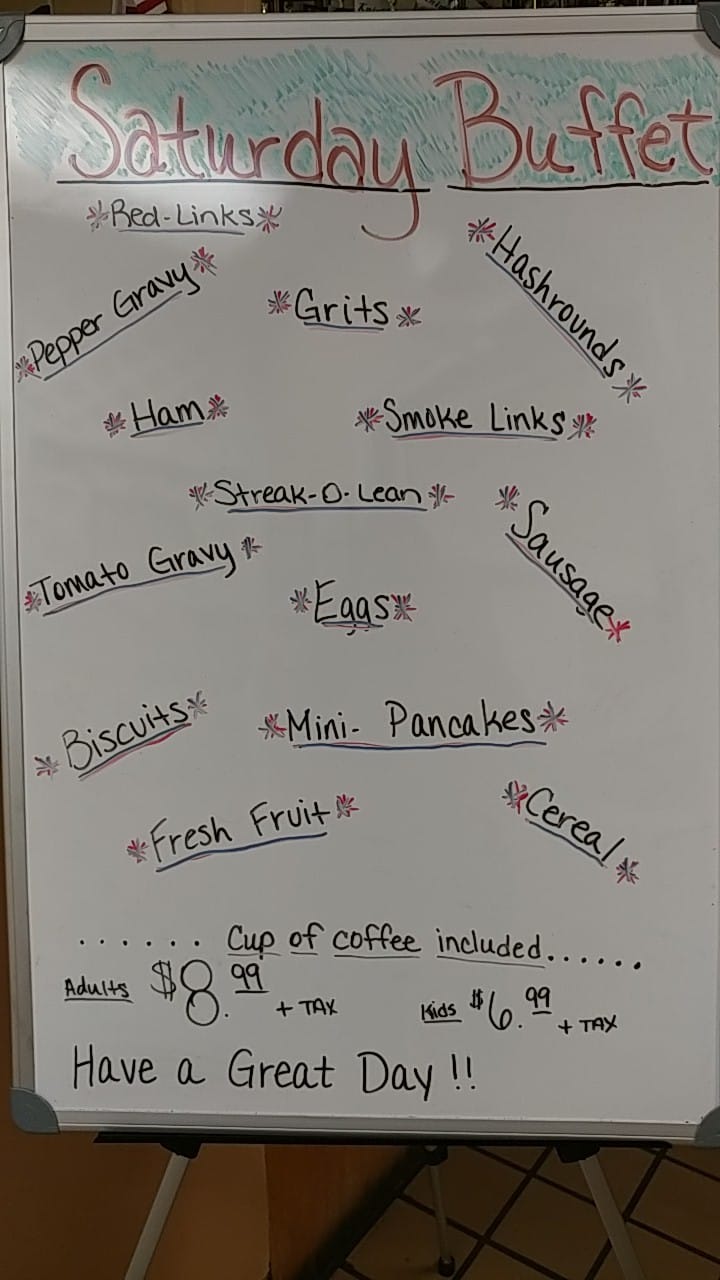 Saturday Buffet
*Red-Links*
*Hashrounds*
*Pepper Gravy*
*Grits*
*Ham*
*Smoke Links*
*Streak-O-Lean*
*Sausage*
*Tomato Gravy*
*Eggs*
*Biscuits*
*Mini- Pancakes*
*Fresh Fruit*
*Cereal*
...... Cup of coffee included......
Adults $8.99 + TAX Kids $6.99 + TAX
Have a Great Day !!